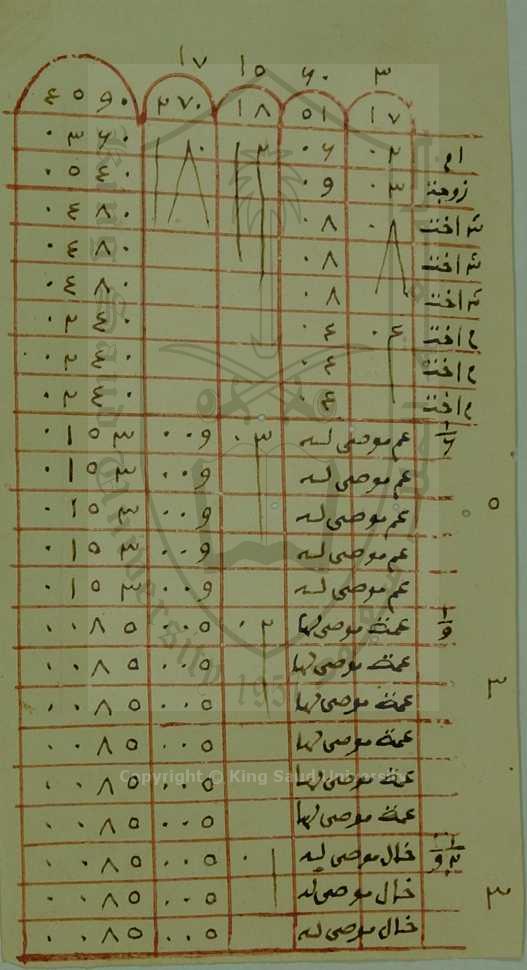 ٣ ٦٠ ١٥ ١٧
١٧ ٥١ ١٨ ٢٧٠ ٤٥٩٠
ام ٠٣ ٠٦ ١٢ ١٨٠ ٠٣٦٠
زوجة ٠٣ ٠٩ ٠٥٤٠
اخت ٠٨ ٠٨ ٠٤٨٠
اخت ٠٨ ٠٤٨٠
اخت ٠٨ ٠٤٨٠
م اخت ٠٤ ٠٤ ٠٢٤٠
م اخت ٠٤ ٠٢٤٠
م اخت ٠٤ ٠٢٤٠
١/٦ عم موصى له ٠٣ ٠٠٩ ٠١٥٣
عم موصى له ٠٠٩ ٠١٥٣
٥ عم موصى له ٠٠٩ ٠١٥٣
عم موصى له ٠٠٩ ٠١٥٣
عم موصى له ٠٠٩ ٠١٥٣
١/٩ عمة موصى لها ٠٢ ٠٠٥ ٠٠٨٥
عمة موصى لها ٠٠٥ ٠٠٨٥
٣ عمة موصى لها ٠٠٥ ٠٠٨٥
عمة موصى لها ٠٠٥ ٠٠٨٥
عمة موصى لها ٠٠٥ ٠٠٨٥
عمة موصى لها ٠٠٥ ٠٠٨٥
خال موصى له ٠١ ٠٠٥ ٠٠٨٥
٣ خال موصى له ٠٠٥ ٠٠٨٥
خال موصى له ٠٠٥ ٠٠٨٥
Copyright © King Saud University